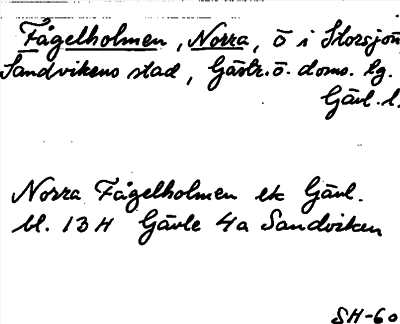 Fågelholmen, Norra, ö i Storsjön
Sandvikens stad, Gästr. ö. doms. lg.
Gävl. l.
Norra Fågelholmen ek Gävl.
bl. 13 H Gävle 4a Sandviken
SH-60